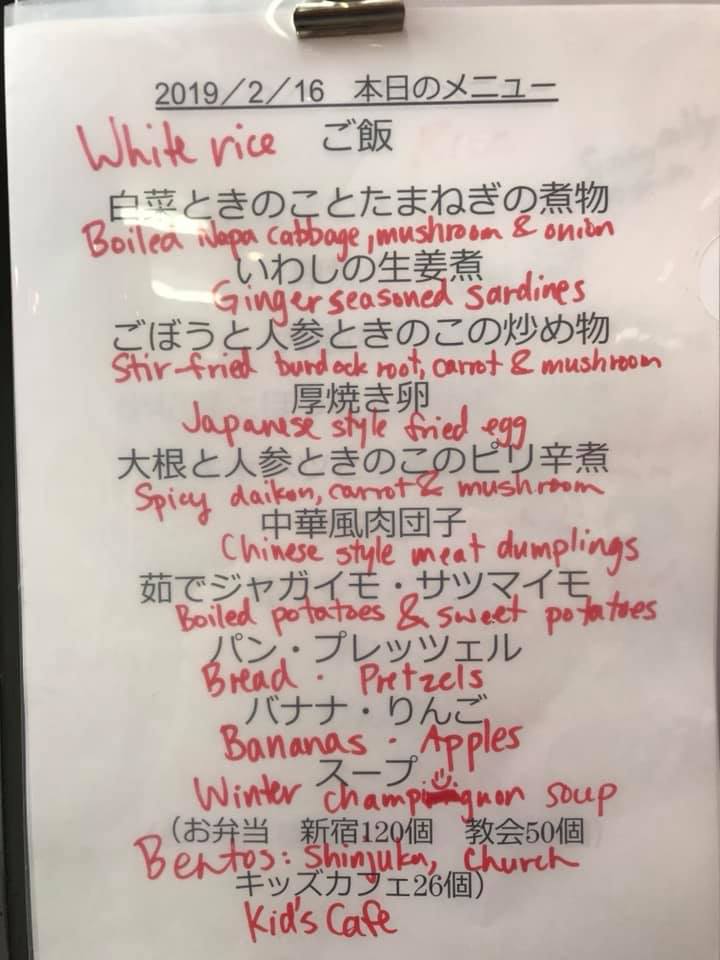 2019/2/16 本日のメニュー
White rice ご飯
白菜ときのことたまねぎの煮物
Boiled Napa cabbage, mushroom & onion
いわしの生姜煮
Ginger seasoned sardines
ごぼうと人参ときのこの炒め物
Stir-fried burdock root, carrot & mushroom
厚焼き卵
Japanese style fried egg
大根と人参ときのこのピリ辛煮
Spicy daikon, carrot & mushroom
中華風肉団子
Chinese style meat dumplings
茹でジャガイモ・サツマイモ
Boiled potatoes & sweet potatoes
パン・プレッツェル
Bread · Pretzels
バナナ・りんご
Bananas · Apples
スープ
Winter champignon soup
(お弁当 新宿120個 教会50個
Bentos: Shinjuku, Church
キッズカフェ26個)
Kid's Cafe